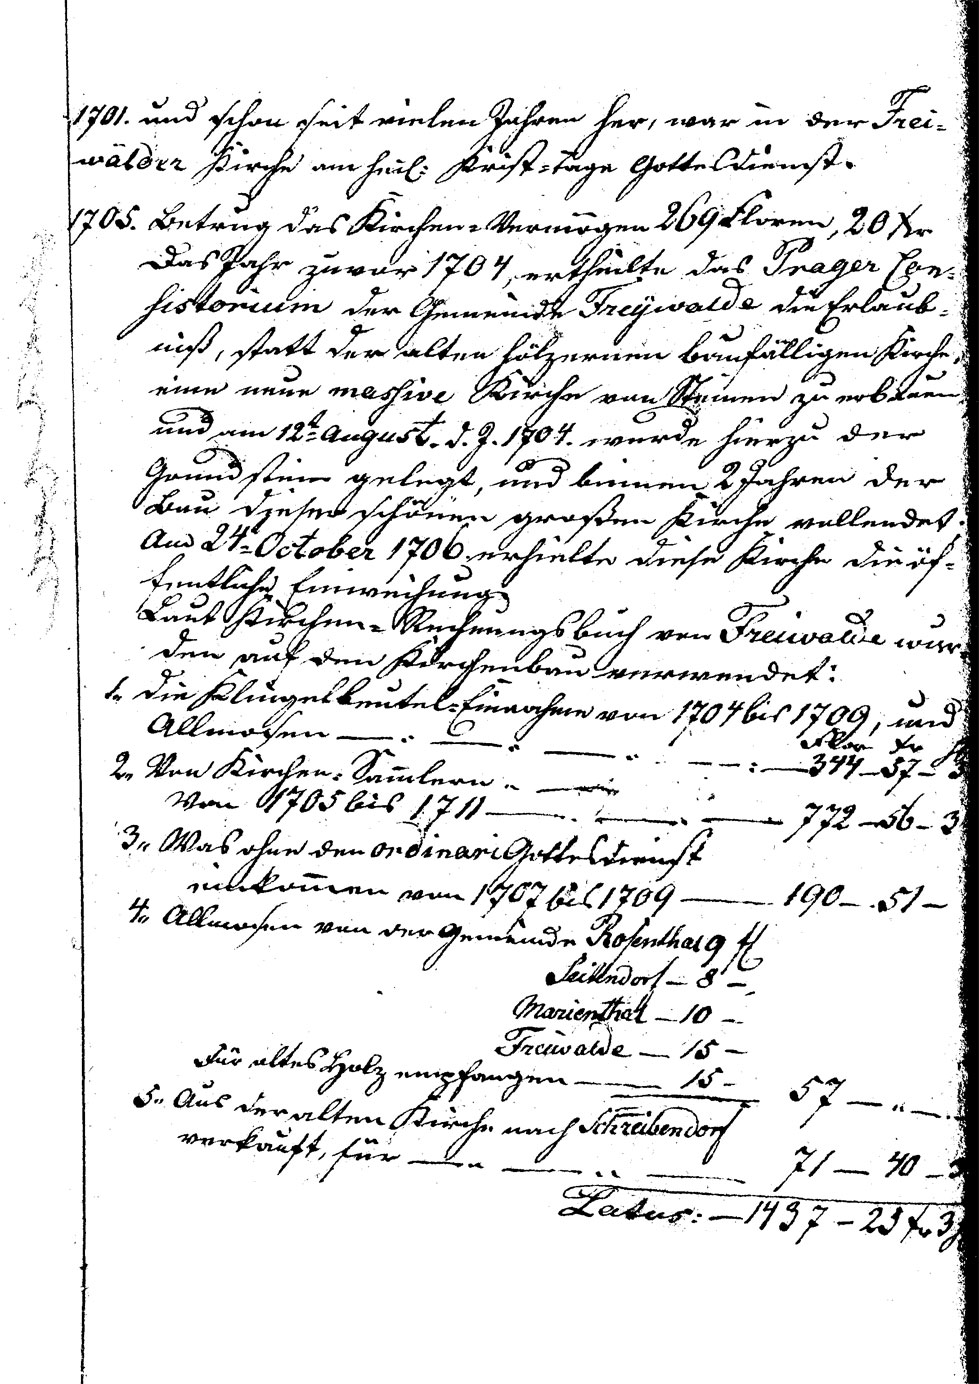 1701. und schon seit vielen Jahren her, war in der Frei=
wälder Kirche am heil: Krist=tage Gottesdienst.
1705. Betrug das Kirchen=Vermögen 269 Floren, 20 Xr
Das Jahr zuvor 1704, ertheilte das Prager Con=
sistorium der Gemeinde Freÿwalde die Erlaub=
niß, statt der alten hölzernen baufälligen Kirche,
eine neue massive Kirche von Steinen zu erbauen
und am 12t August. d. J. 1704. wurde hierzu der
Grundstein gelegt, und binnen 2 Jahren der
Bau dieser schönen großen Kirche vollendet.
Am 24t October 1706 erhielte diese Kirche die öf=
fentliche Einweihung
Laut Kirchen=Rechnungsbuch von Freiwalde wur=
den auf den Kirchenbau verwendet:
1. die Klingelbeutel=Einnahme von 1704 bis 1709, und
Allmosen — Flor Xr
344 – 57 – 3
2. Von Kirchen=Sam̄lern
von 1705 bis 1711 — 772 – 56 – 3
3. Was ohne den ordinari Gottesdienst
einkom̄en von 1707 bis 1709 — 190 – 51 –
4. Allmosen von der Gemeinde Rosenthal 9 fl
Seitendorf – 8 –
Marienthal – 10 –
Freiwalde – 15 –
Für altes Holz empfangen — 15 – 57 — „ —
5. Aus der alten Kirche nach Schreibendorf
verkauft, für — 71 — 40 – 3
Latus: — 1437 – 25 Xr 3